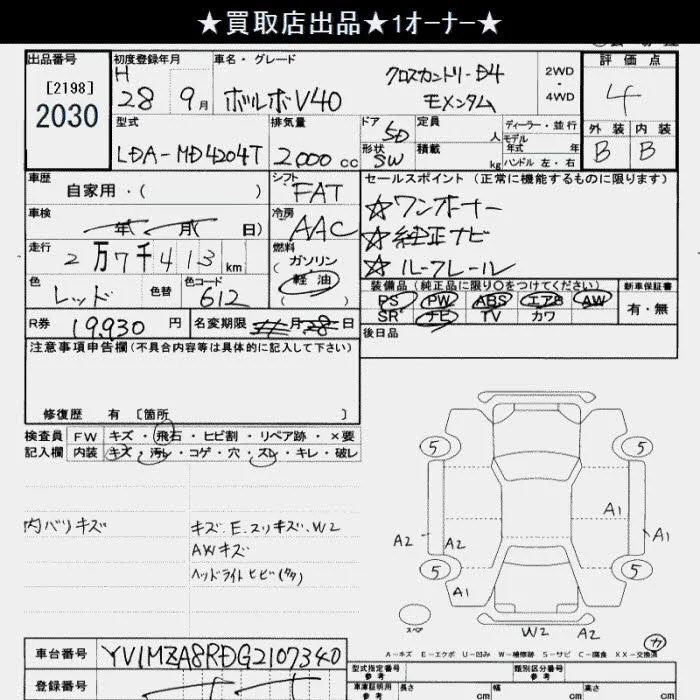 ★買取店出品★1オーナー★
出品番号 初度登録年月 車名・グレード 評価点
[2198]
2030
H
28 9月 ボルボV40 クロスカントリーD4 モメンタム 2WD・4WD 4
型式 排気量 ドア 5D 定員 人 ディーラー・並行 外装 内装
LDA-MD4204T 2000cc 形状 SW 積載 kg モデル年式 年 ハンドル 左・右 B B
車歴 シフト セールスポイント(正常に機能するものに限ります)
自家用・( ) FAT ☆ワンオーナー
車検 年 月 日) 冷房 AAC ☆純正ナビ
走行 2万7千413km 燃料 ガソリン ☆ルーフレール
軽油
( )
色 色替 色コード 装備品(純正品に限り○をつけてください) 新車保証書
レッド 612 PS PW ABS エアB AW 有・無
SR ナビ TV カワ
R券 19,930円 名変期限 月28日 後日品
注意事項申告欄(不具合内容等は具体的に記入して下さい)
修復歴 有 [箇所 ]
検査員 FW キズ・飛石・ヒビ割・リペア跡・×要
記入欄 内装 キズ・汚レ・コゲ・穴・スレ・キレ・破レ
内バリキズ キズ.E.スリキズ.W2
AWキズ
ヘッドライトヒビ(タタ)
5 5
A1 A1
A2 A2
5 5
A1
スペア W2 A2 カ
A-キズ E-エクボ U-凹み W-補修跡 S-サビ C-腐食 XX-交換済
車台番号 YV1MZA8RDG2107340
型式指定番号 参考 類別区分番号 参考
登録番号 車庫証明用 参考 長さ cm 幅 cm 高さ cm